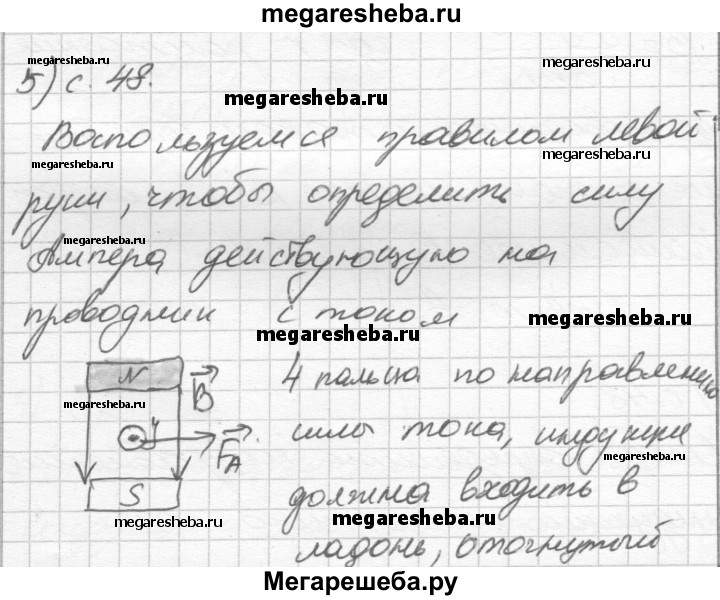 megaresheba.ru
5) с. 48.
megaresheba.ru
megaresheba.ru
megaresheba.ru
Воспользуемся правилом левой
megaresheba.ru
megaresheba.ru
руки, чтобы определить силу
megaresheba.ru
Ампера действующую на
проводник с током
megaresheba.ru
megaresheba.ru
N B 4 пальца по направлению
megaresheba.ru
megaresheba.ru
y FA силы тока, индукция
megaresheba.ru
S должна входить в
megaresheba.ru
megaresheba.ru
ладонь, отогнутый
Мегарешеба.ру